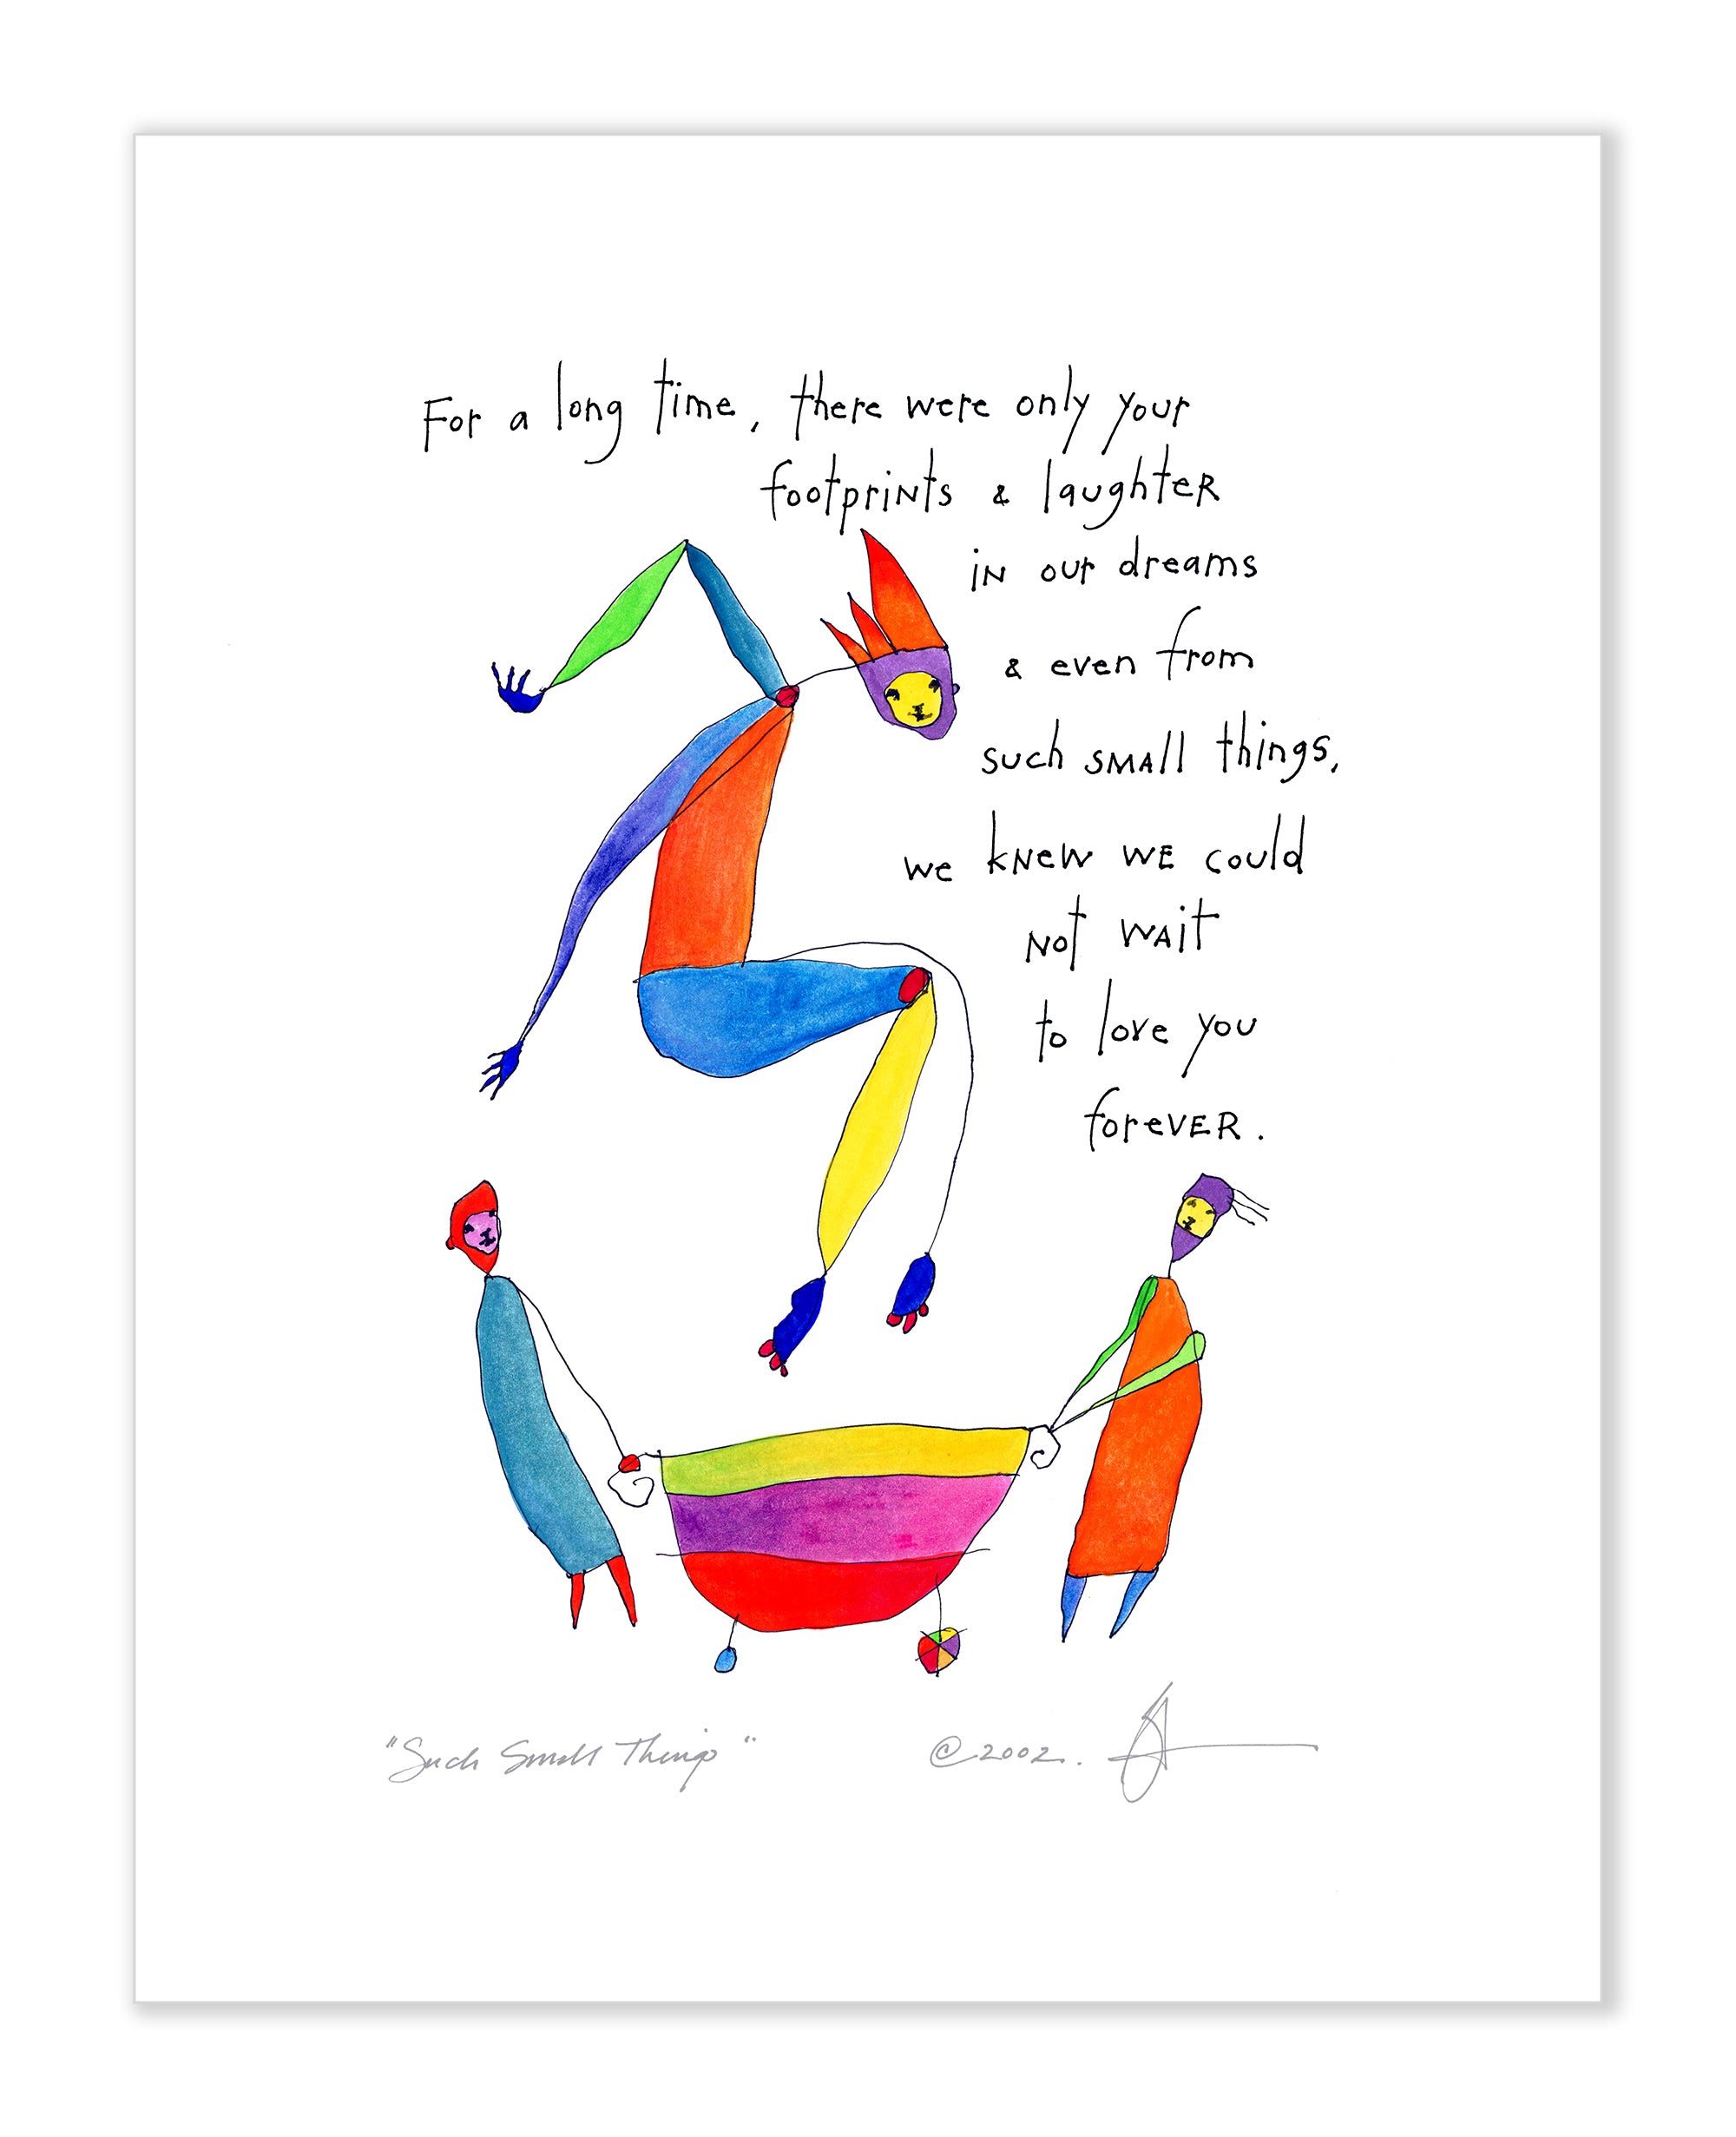 For a long time, there were only your
footprints & laughter
in our dreams
& even from
such small things,
we knew we could
not wait
to love you
forever.
"Such Small Things" ©2002.